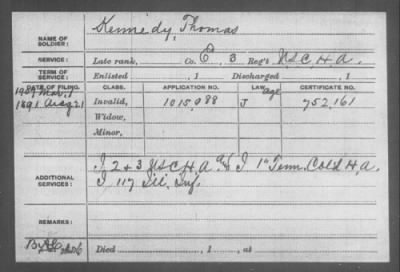 NAME OF SOLDIER: Kennedy, Thomas
SERVICE: Late rank, Co. E, 3 Reg't U.S.C.H.A.
TERM OF SERVICE: Enlisted , 1 Discharged , 1
DATE OF FILING. CLASS. APPLICATION NO. LAW. CERTIFICATE NO.
1907 Mar. 1 age
1891 Aug 21 Invalid, 1015,988 J 752,161
Widow,
Minor,
ADDITIONAL SERVICES: I 2 + 3 U.S.C.H.A. I 1st Tenn. Cold H.A.
I 117 Ill. Inf.
REMARKS:
Died , 1 , at